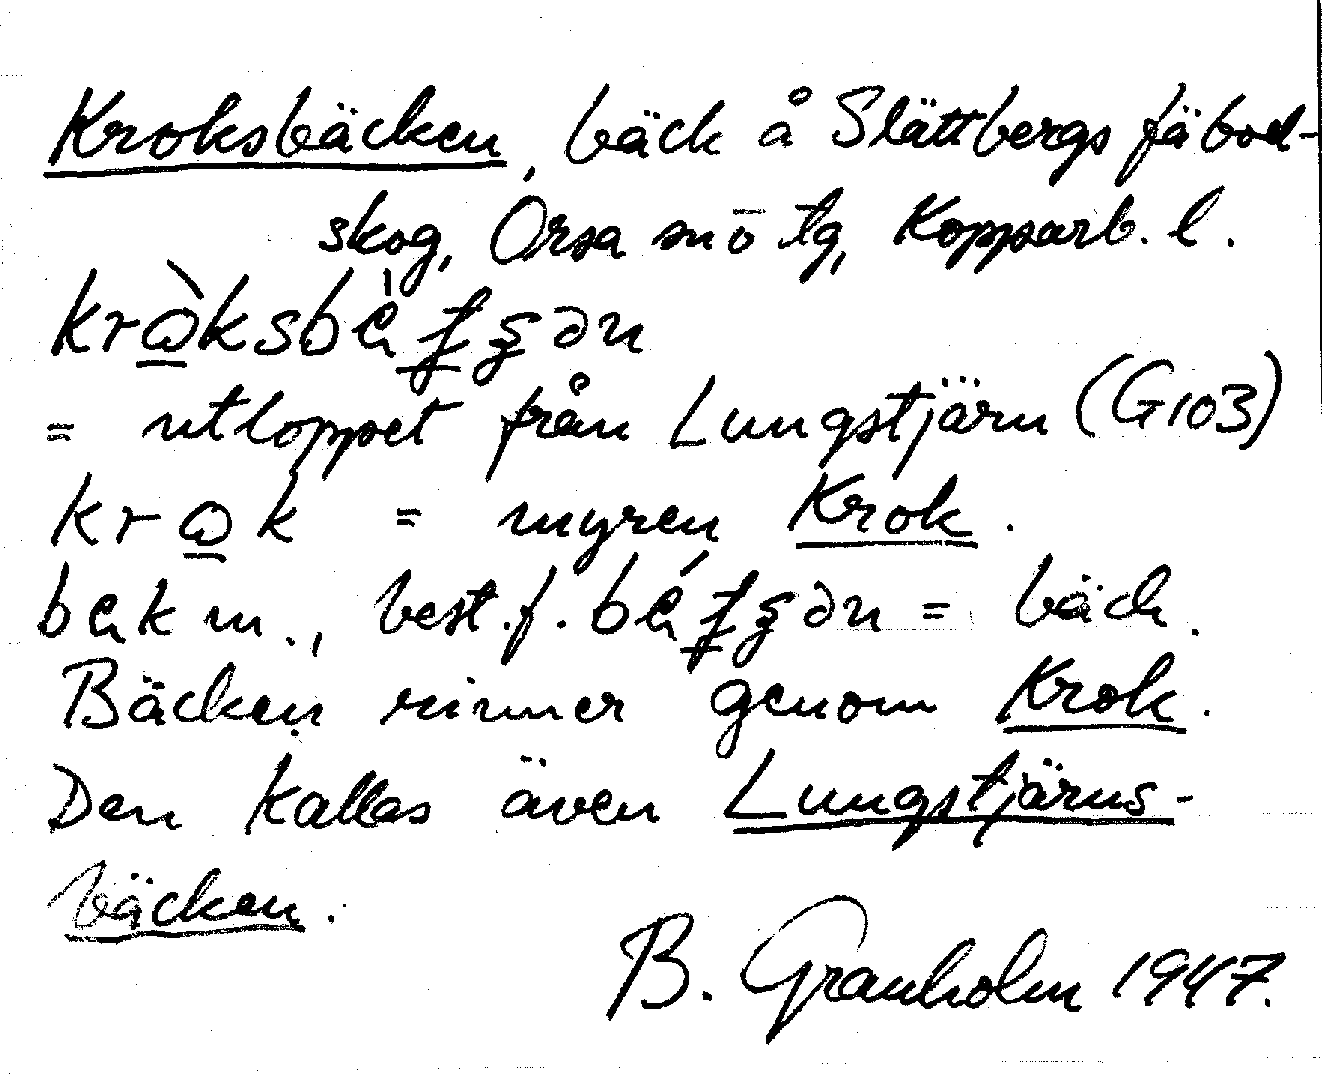 Kroksbäcken, bäck å Slättbergs fäbod-
skog, Orsa sn o tg, Kopparb. l.
= utloppet från Lungstjärn (G103)
= myren Krok.
m., best.f. = bäck.
Bäcken rinner genom Krok.
Den kallas även Lungstjärns-
bäcken.
B. Granholm 1947.